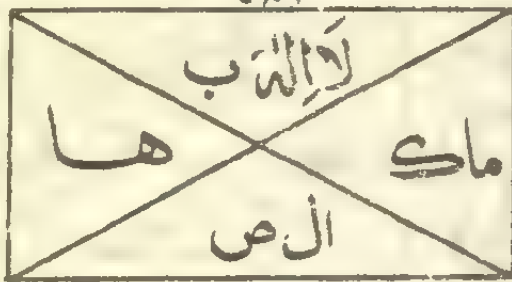 لَا إِلٰهَ ب
ماك
ها
ال ص